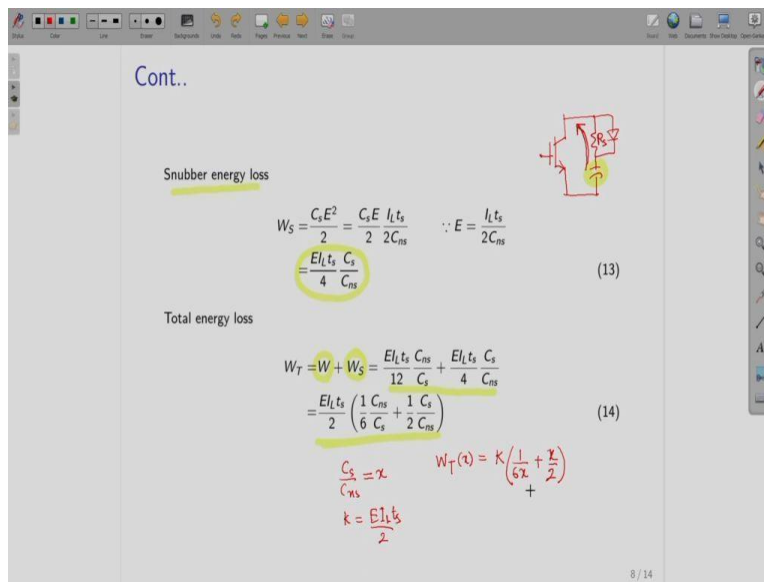 Stylus Color Line Eraser Backgrounds Undo Redo Pages Previous Next Erase Group Board Web Documents Show Desktop
Cont..
R_s
Snubber energy loss
W_S = C_sE²/2 = C_sE/2 I_Lt_s/2C_ns ∵ E = I_Lt_s/2C_ns
= EI_Lt_s/4 C_s/C_ns (13)
Total energy loss
W_T = W + W_S = EI_Lt_s/12 C_ns/C_s + EI_Lt_s/4 C_s/C_ns
= EI_Lt_s/2 (1/6 C_ns/C_s + 1/2 C_s/C_ns) (14)
C_s/C_ns = x W_T(x) = K(1/6x + x/2)
K = EI_Lt_s/2
8 / 14